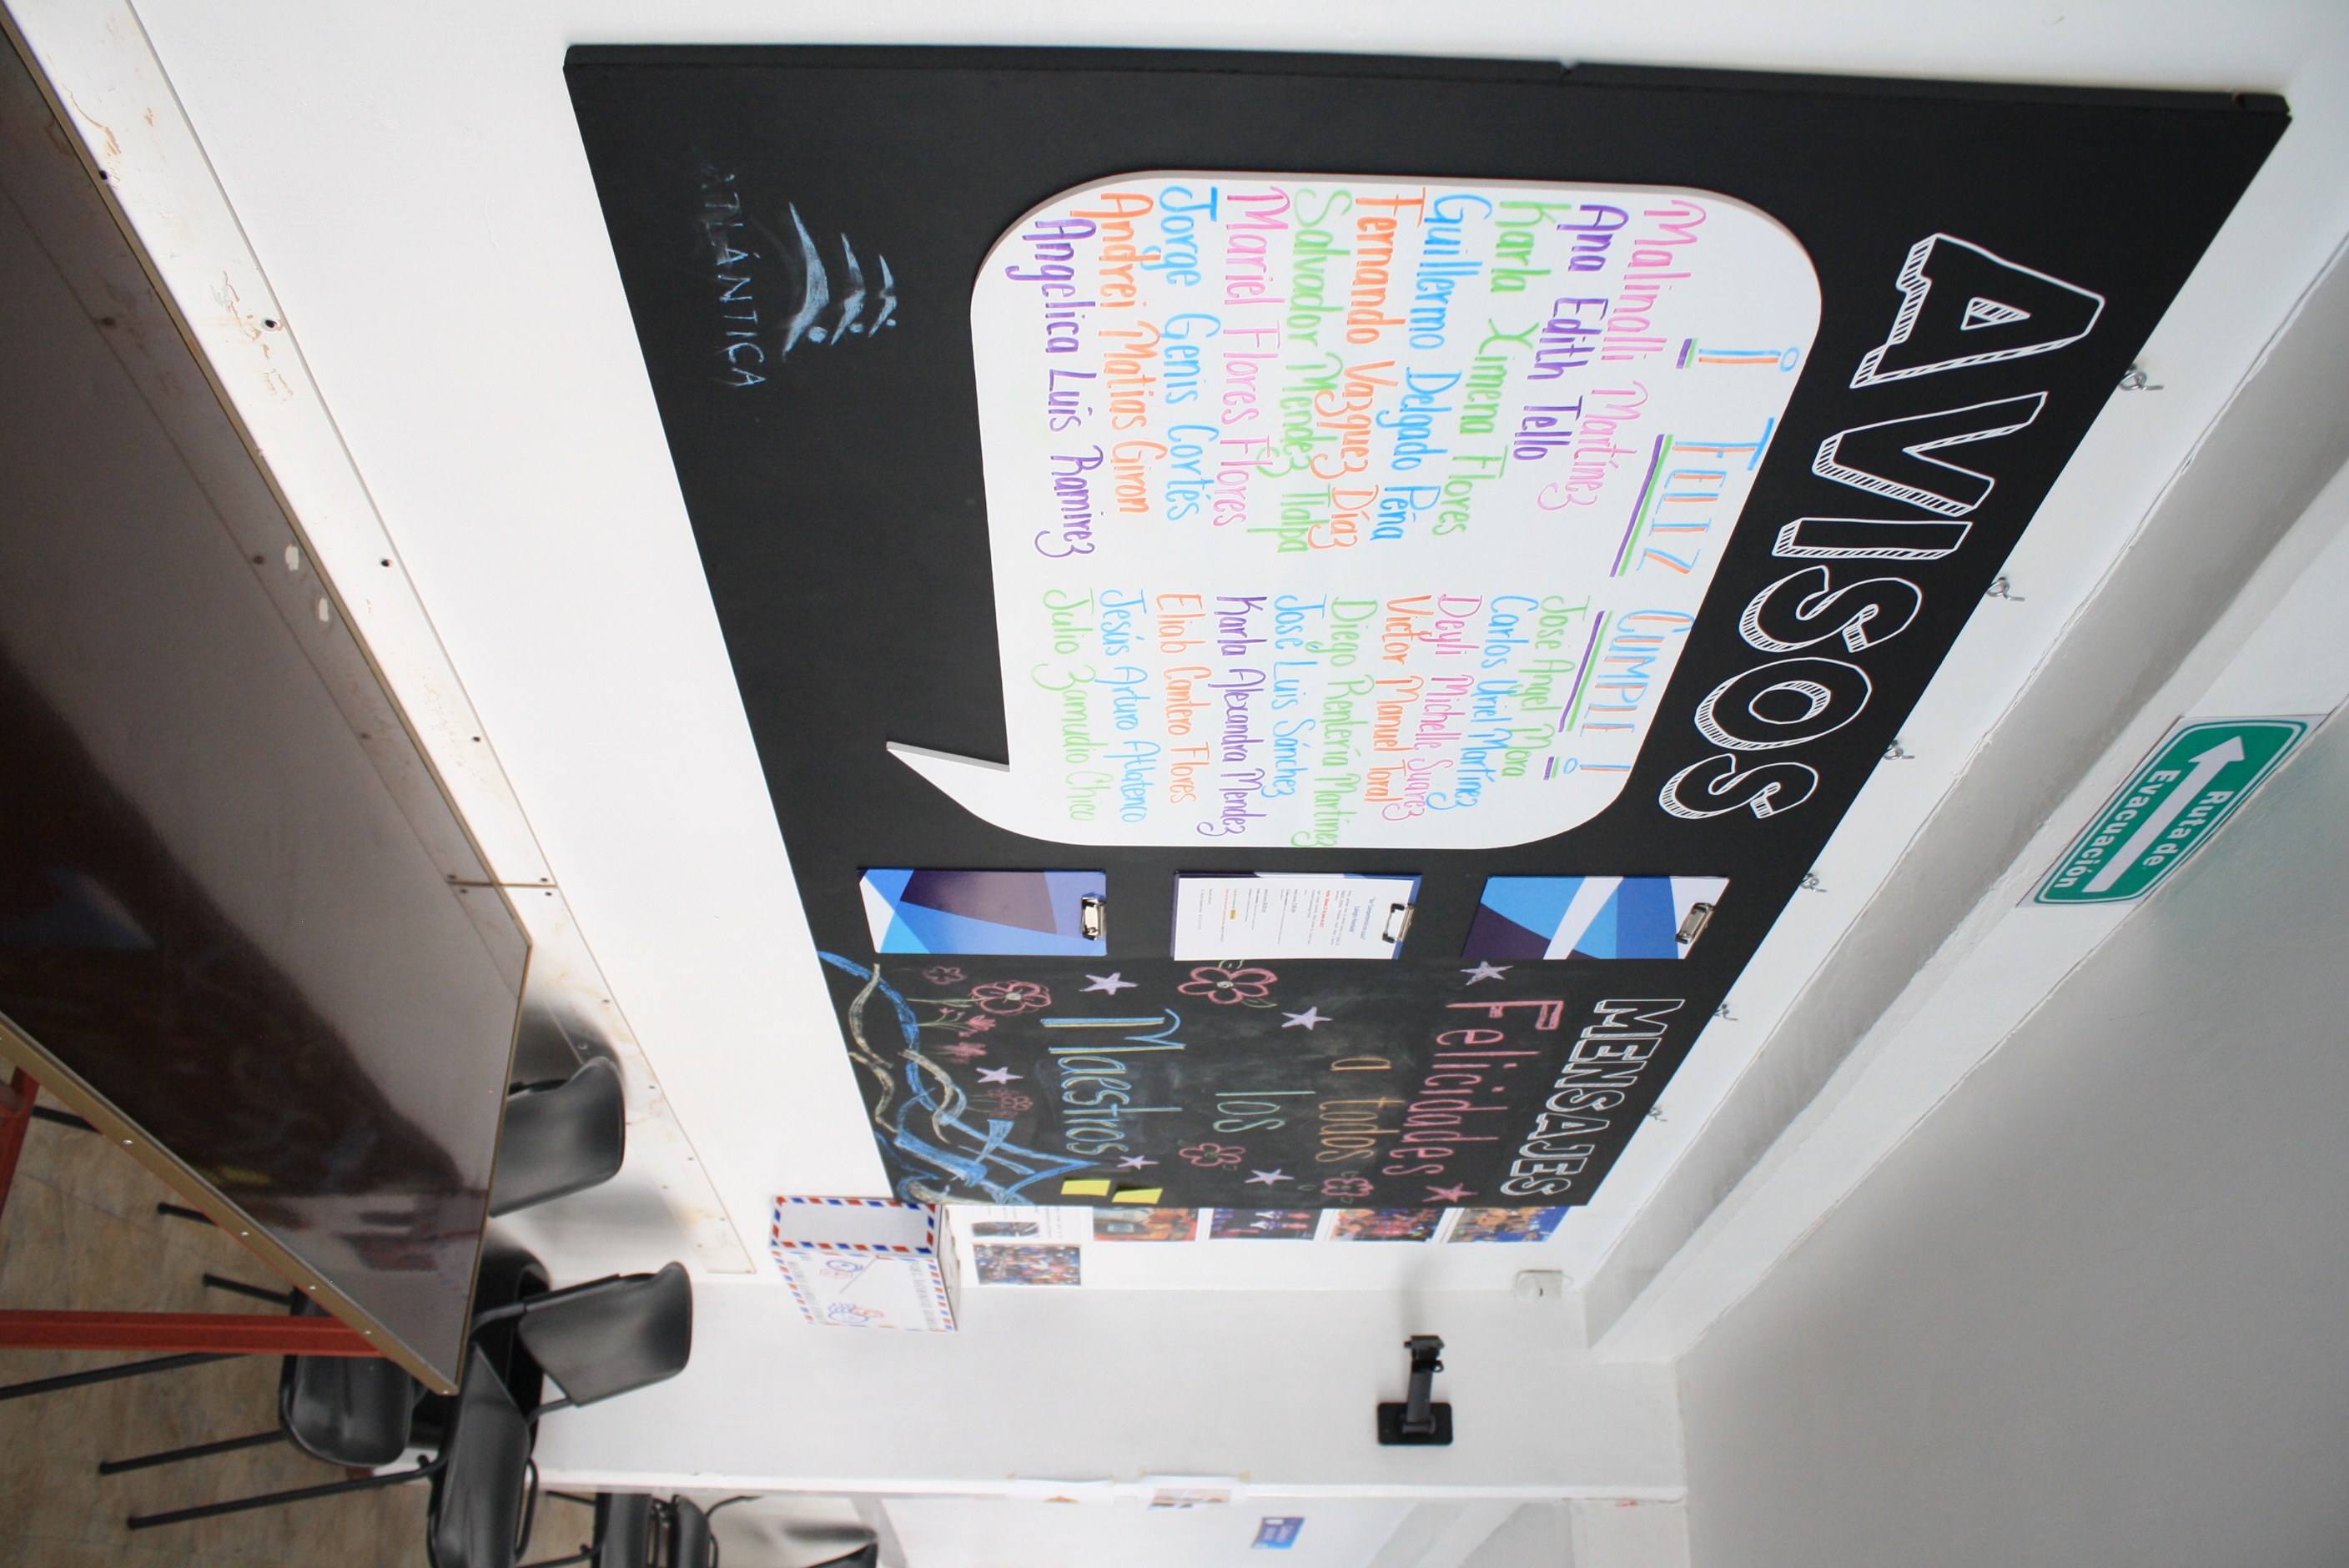 Ruta de
Evacuación
AVISOS
¡ FELIZ CUMPLE !
Malinalli Martínez
Ana Edith Tello
Karla Ximena Flores
Guillermo Delgado Peña
Fernando Vazquez Díaz
Salvador Mendez Tlalpa
Mariel Flores Flores
Jorge Genis Cortés
Andrei Matias Giron
Angelica Luis Ramirez
José Angel Mora
Carlos Uriel Martínez
Deyli Michelle Suarez
Victor Manuel Toral
Diego Rentería Martínez
José Luis Sánchez
Karla Alexandra Mendez
Eliab Cantero Flores
Jesús Arturo Atlatenco
Julio Zamudio Chico
ATLÁNTICA
MENSAJES
Felicidades
a todos
los
Maestros